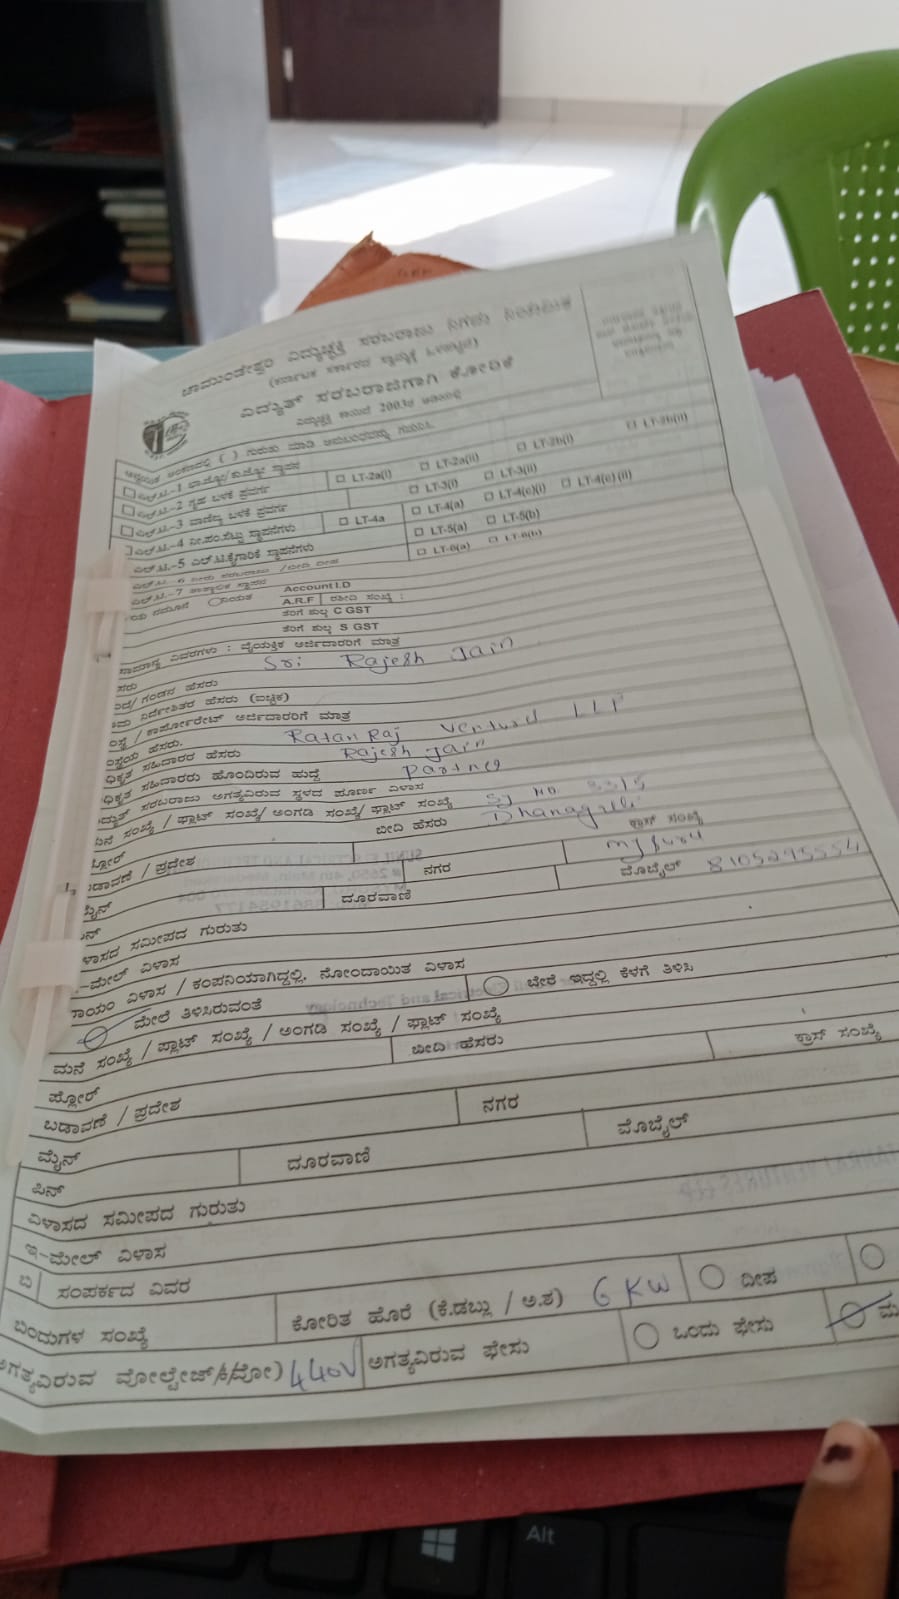 ಚಾಮುಂಡೇಶ್ವರಿ ವಿದ್ಯುಚ್ಛಕ್ತಿ ಸರಬರಾಜು ನಿಗಮ ನಿಯಮಿತ
(ಕರ್ನಾಟಕ ಸರ್ಕಾರದ ಸ್ವಾಮ್ಯಕ್ಕೆ ಒಳಪಟ್ಟಿದೆ)
ವಿದ್ಯುತ್ ಸರಬರಾಜಿಗಾಗಿ ಕೋರಿಕೆ
ವಿದ್ಯುಚ್ಛಕ್ತಿ ಕಾಯಿದೆ 2003ರ
ಗುರುತು ಮಾಡಿ
ಎಲ್.ಟಿ.-1 ಭಾಗ್ಯಜ್ಯೋತಿ/ಕುಟೀರಜ್ಯೋತಿ ಸ್ಥಾಪನ
ಎಲ್.ಟಿ.-2 ಗೃಹ ಬಳಕೆ ಪ್ರವರ್ಗ LT-2a(i) LT-2a(ii) LT-2b(i) LT-2b(ii)
ಎಲ್.ಟಿ.-3 ವಾಣಿಜ್ಯ ಬಳಕೆ ಪ್ರವರ್ಗ LT-3(i) LT-3(ii)
ಎಲ್.ಟಿ.-4 ನೀ.ಪಂ.ಸೆಟ್ಟು ಸ್ಥಾಪನೆಗಳು LT-4a LT-4(a) LT-4(c)(i) LT-4(c)(ii)
ಎಲ್.ಟಿ.-5 ಎಲ್.ಟಿ.ಕೈಗಾರಿಕೆ ಸ್ಥಾಪನೆಗಳು LT-5(a) LT-5(b)
ಎಲ್.ಟಿ.-6 ನೀರು ಸರಬರಾಜು /ಬೀದಿ ದೀಪ LT-6(a) LT-6(b)
ಎಲ್.ಟಿ.-7 ತಾತ್ಕಾಲಿಕ ಸ್ಥಾಪನ
ನಮೂನೆ Account I.D
A.R.F ರಶೀದಿ ಸಂಖ್ಯೆ :
ತೆರಿಗೆ ಶುಲ್ಕ C GST
ತೆರಿಗೆ ಶುಲ್ಕ S GST
ವಿವರಗಳು : ವೈಯಕ್ತಿಕ ಅರ್ಜಿದಾರರಿಗೆ ಮಾತ್ರ
ಸರು Sri Rajesh Jain
/ ಗಂಡನ ಹೆಸರು
ನಿರ್ದೇಶಿತರ ಹೆಸರು (ಐಚ್ಛಿಕ)
/ ಕಾರ್ಪೋರೇಟ್ ಅರ್ಜಿದಾರರಿಗೆ ಮಾತ್ರ
ಹೆಸರು. Ratan Raj LLP
ಸಹಿದಾರರ ಹೆಸರು Rajesh Jain
ಸಹಿದಾರರು ಹೊಂದಿರುವ ಹುದ್ದೆ Partner
ಸರಬರಾಜು ಅಗತ್ಯವಿರುವ ಸ್ಥಳದ ಪೂರ್ಣ ವಿಳಾಸ
ಸಂಖ್ಯೆ / ಪ್ಲಾಟ್ ಸಂಖ್ಯೆ/ ಅಂಗಡಿ ಸಂಖ್ಯೆ/ ಫ್ಲಾಟ್ ಸಂಖ್ಯೆ Sy No.
ಬೀದಿ ಹೆಸರು Dhanagalli ಕ್ರಾಸ್ ಸಂಖ್ಯೆ
ಬಡಾವಣೆ / ಪ್ರದೇಶ ನಗರ
ದೂರವಾಣಿ ಮೊಬೈಲ್ 8105295554
ವಿಳಾಸದ ಸಮೀಪದ ಗುರುತು
ಇ-ಮೇಲ್ ವಿಳಾಸ
ವಿಳಾಸ / ಕಂಪನಿಯಾಗಿದ್ದಲ್ಲಿ, ನೋಂದಾಯಿತ ವಿಳಾಸ
ಮೇಲೆ ತಿಳಿಸಿರುವಂತೆ ಬೇರೆ ಇದ್ದಲ್ಲಿ ಕೆಳಗೆ ತಿಳಿಸಿ
ಮನೆ ಸಂಖ್ಯೆ / ಪ್ಲಾಟ್ ಸಂಖ್ಯೆ / ಅಂಗಡಿ ಸಂಖ್ಯೆ / ಫ್ಲಾಟ್ ಸಂಖ್ಯೆ
ಪ್ಲೋರ್ ಬೀದಿ ಹೆಸರು ಕ್ರಾಸ್ ಸಂಖ್ಯೆ
ಬಡಾವಣೆ / ಪ್ರದೇಶ ನಗರ
ಮೈನ್
ಪಿನ್ ದೂರವಾಣಿ ಮೊಬೈಲ್
ವಿಳಾಸದ ಸಮೀಪದ ಗುರುತು
ಇ-ಮೇಲ್ ವಿಳಾಸ
ಬಿ ಸಂಪರ್ಕದ ವಿವರ
ಬಿಂದುಗಳ ಸಂಖ್ಯೆ ಕೋರಿತ ಹೊರೆ (ಕೆ.ಡಬ್ಲು / ಅ.ಶ) 6 KW ದೀಪ
ಅಗತ್ಯವಿರುವ ವೋಲ್ಟೇಜ್ 440V ಅಗತ್ಯವಿರುವ ಫೇಸು ಒಂದು ಫೇಸು
Alt